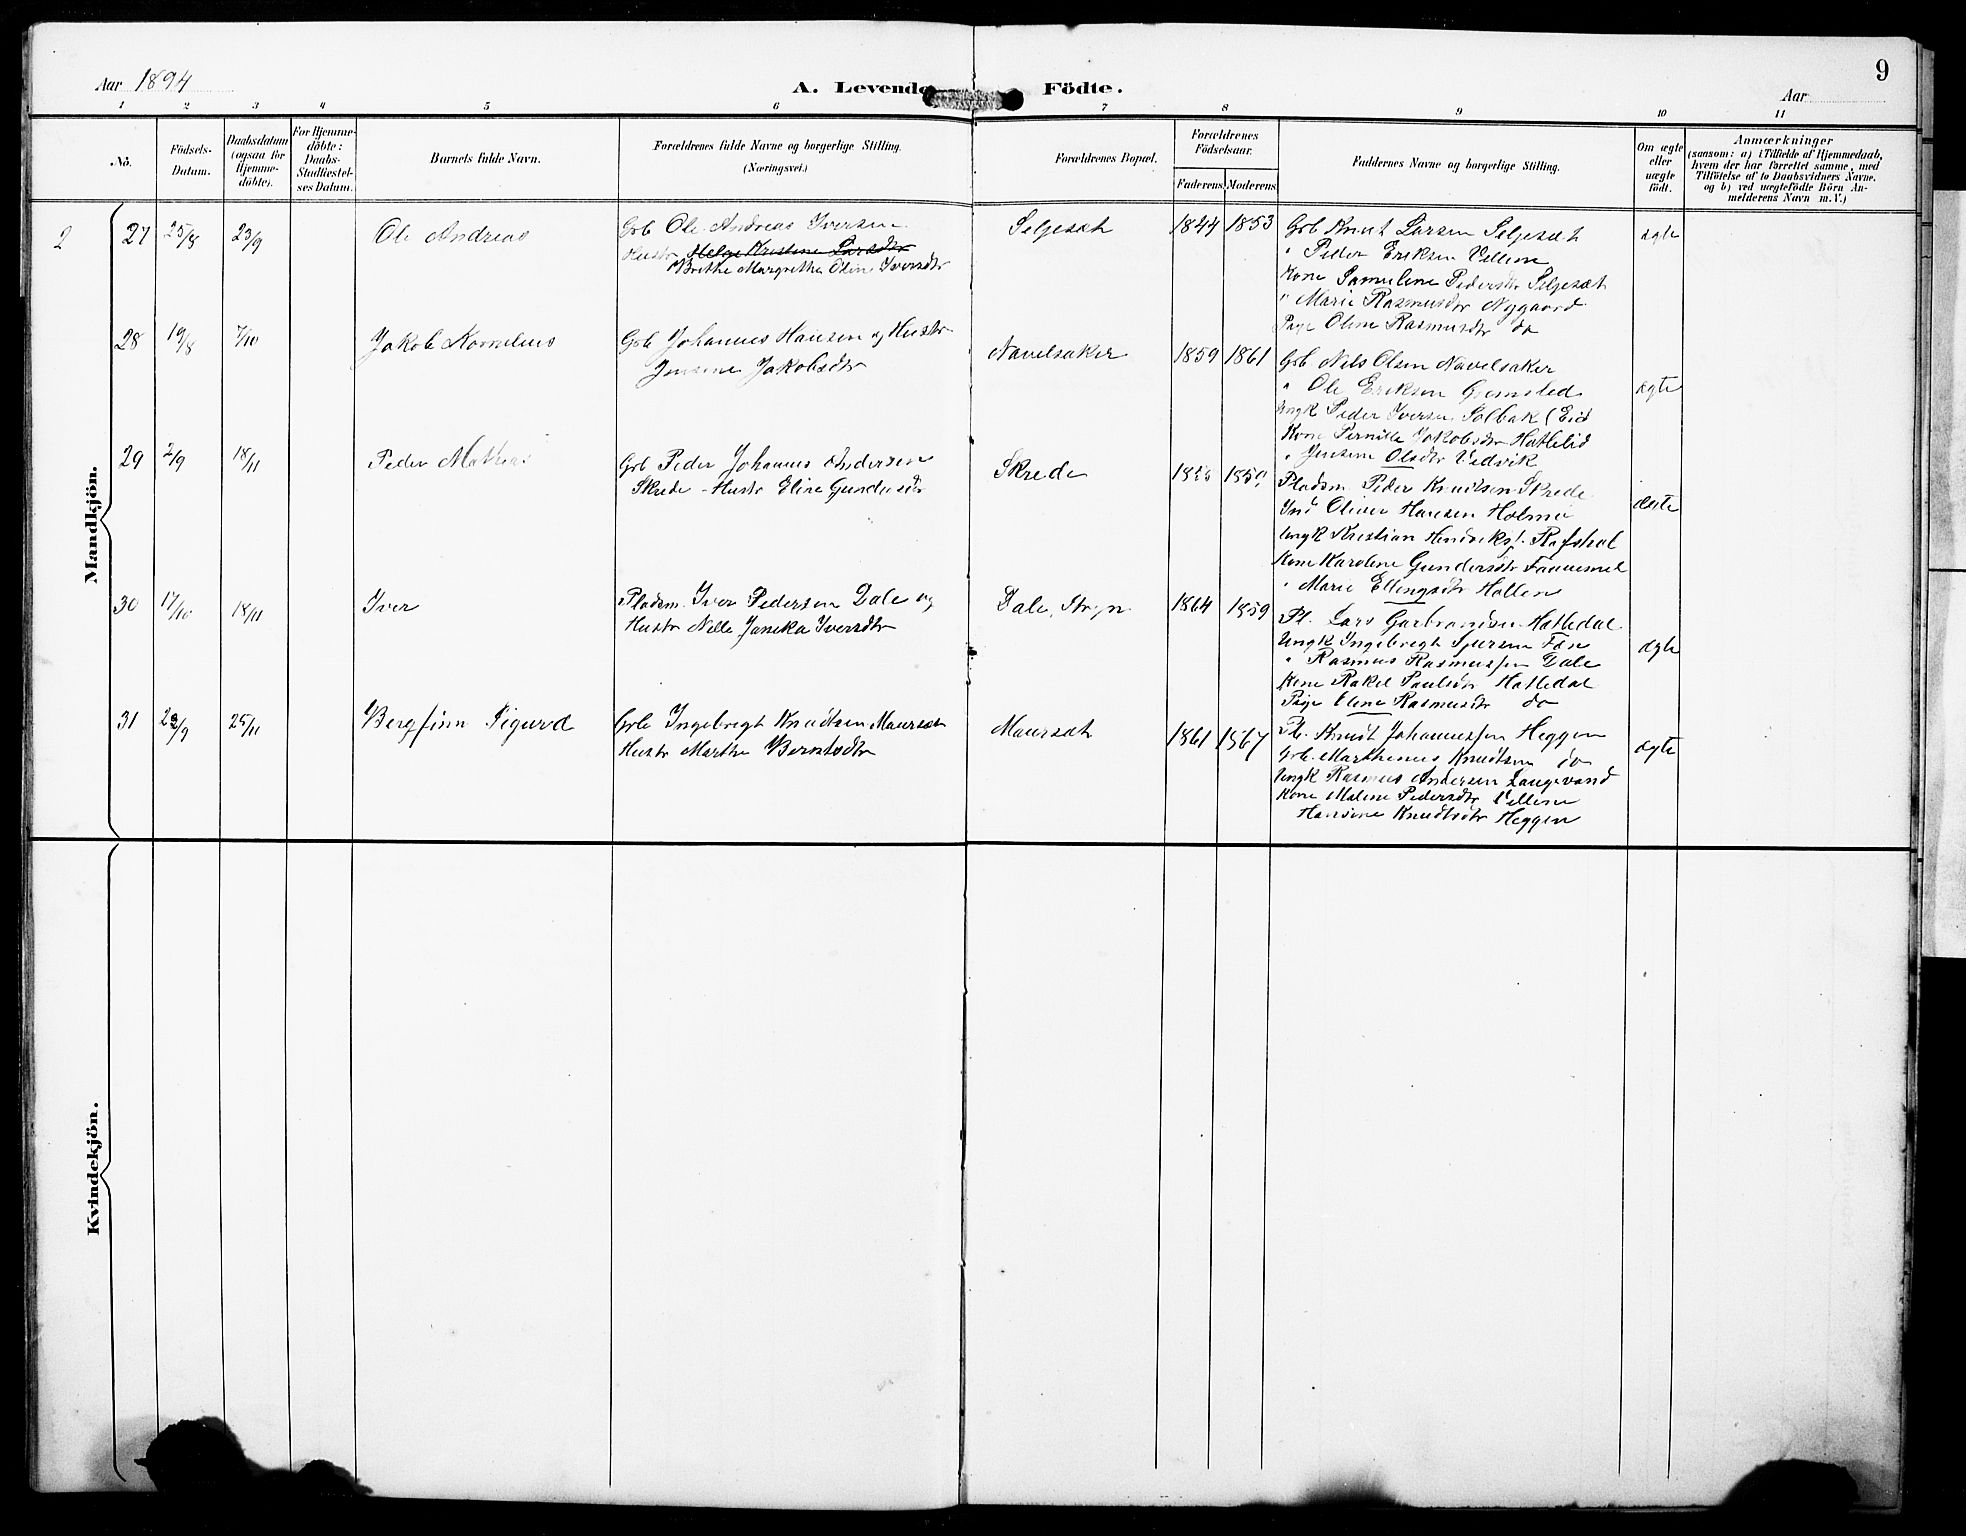 9
Aar 1894
A. Levende Födte.
Aar
1 2 3 4 5 6 7 8 9 10 11
No.
Födsels-
Datum.
Daabsdatum
(ogsaa for
Hjemme-
döbte).
For Hjemme-
döbte:
Daabs-
Stadfæstel-
ses Datum.
Barnets fulde Navn.
Forældrenes fulde Navne og borgerlige Stilling.
(Næringsvei.)
Forældrenes Bopæl.
Forældrenes
Födselsaar.
Faderens. Moderens.
Faddernes Navne og borgerlige Stilling.
Om ægte
eller
uægte
födt.
Anmærkninger
(saasom: a) i Tilfælde af Hjemmedaab,
hvem der har forrettet samme, med
Tilföielse af to Daabsvidners Navne,
og b) ved uægtefödte Börn An-
melderens Navn m. V.)
Mandkjön.
2
27 25/8 23/9 Ole Andreas
Grb Ole Andreas Iversen
Hustr Helge Kristine Larsdtr
Brithe Margrethe Oline Iversdtr
Seljesæt 1844 1853
Grb Knut Larsen Seljesæt
" Peder Eriksen Vellene
Kone Samuline Pedersdtr Seljesæt
" Marie Rasmusdtr Nygaard
Pige Oline Rasmusdtr do
ægte
28 19/8 7/10 Jakob Kornelius
Grb Johannes Hansen og Hustr
Jensine Jakobsdtr
Navelsaker 1859 1861
Grb Nils Olsen Navelsaker
" Ole Eriksen Grønsled
Ungk Peder Iversen Solbak (Eid
Kone Pernille Jakobsdtr Hatlelid
" Jensine Olsdtr Vedvik
ægte
29 2/9 18/11 Peder Mathias
Grb Peder Johannes Andersen
Skrede - Hustr Eline Gundersdtr
Skrede
Pladsm Peder Knudsen Skrede
Ind Oliver Hansen Holmø
Ungk Kristian Hendriks. Rafstal
Kone Karoline Gundersdtr Faanemel
" Marie Ellingsdtr Hollen
ægte
30 17/10 18/11 Iver
Pladsm. Iver Pedersen Dale og
Hustr Nille Janika Iversdtr
Dale, Stryn 1864 1859
Pl. Lars Garbrandsen Hatledal
Ungk Ingebregt Sjursen Føn
" Rasmus Rasmussen Dale
Kone Rakel Paulsdtr Hatledal
Pige Eline Rasmusdtr do
ægte
31 23/9 25/11 Bergfinn Sigurd
Grb Ingebregt Knudtsen Maursæt
Hustr Marthe Berntsdtr
Maursæt 1861 1867
Pl. Knut Johannessen Heggen
Grb. Marthenus Knudtsen do
Ungk Rasmus Andersen Langevand
Kone Malene Pedersdtr Vellene
Hansine Knudtsdtr Heggen
ægte
Kvindekjön.